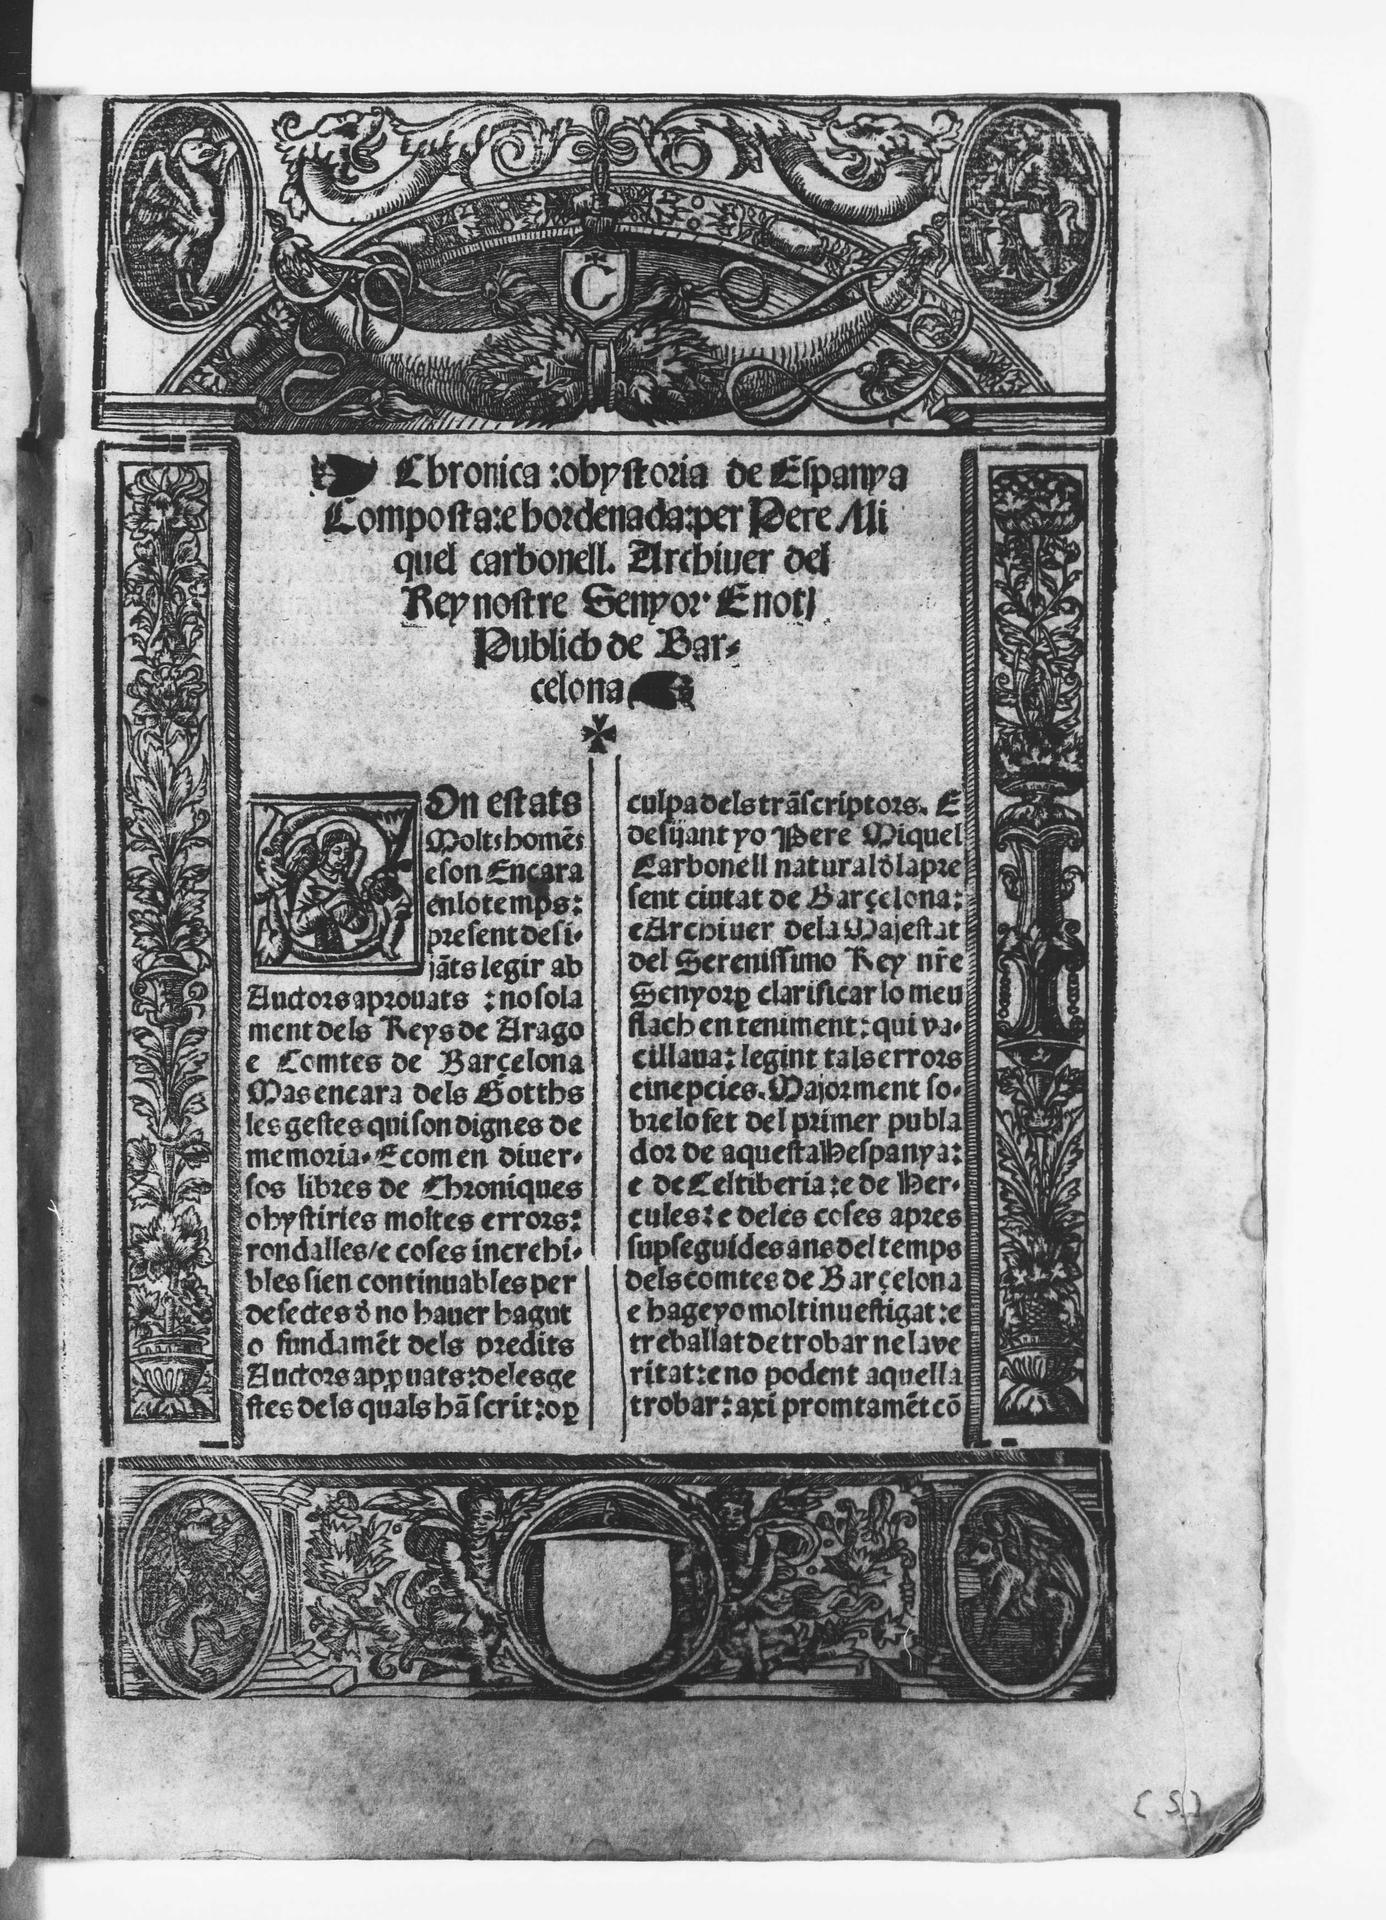 C
Chronica :o hystoria de Espanya
Composta: e hordenada: per Pere Mi
quel carbonell. Archiuer del
Rey nostre Senyor E noti
Publich de Bar-
celona
SOn estats
Molts homẽs
e son Encara
en lo temps:
present desi-
jãts legir ab
Auctors aprouats : no sola
ment dels Reys de Arago
e Comtes de Barçelona
Mas encara dels Gotths
les gestes qui son dignes de
memoria. E com en diuer-
sos libres de Chroniques
o hystiries moltes errors:
rondalles/e coses increhi-
bles sien continuables per
defectes d̉ no hauer hagut
o fundamẽt dels predits
Auctors apꝓuats: de les ge
stes dels quals hã scrit: o ꝑ
culpa dels trãscriptors. E
desijant yo Pere Miquel
Carbonell natural d̉ la pre
sent ciutat de Barçelona:
e Archiuer de la Majestat
del Serenissimo Rey nr̃e
Senyor ꝑ clarificar lo meu
flach enteniment: qui va-
cillaua: legint tals errors
e inepcies. Majorment so-
bre lo fet del primer publa
dor de aquesta Hespanya:
e de Celtiberia: e de Her-
cules: e de les coses apres
supseguides ans del temps
dels comtes de Barçelona
e hage yo molt inuestigat: e
treballat de trobar ne la ve
ritat: e no podent aquella
trobar: axi promtamẽt cõ
[5]